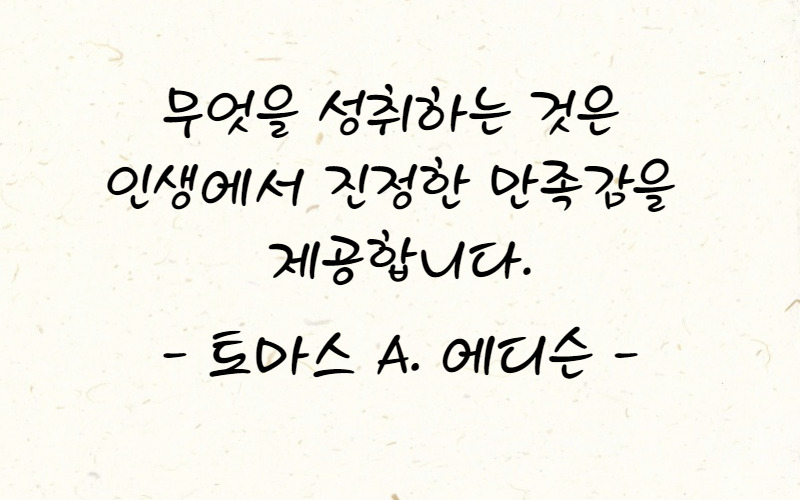 무엇을 성취하는 것은
인생에서 진정한 만족감을
제공합니다.
- 토마스 A. 에디슨 -